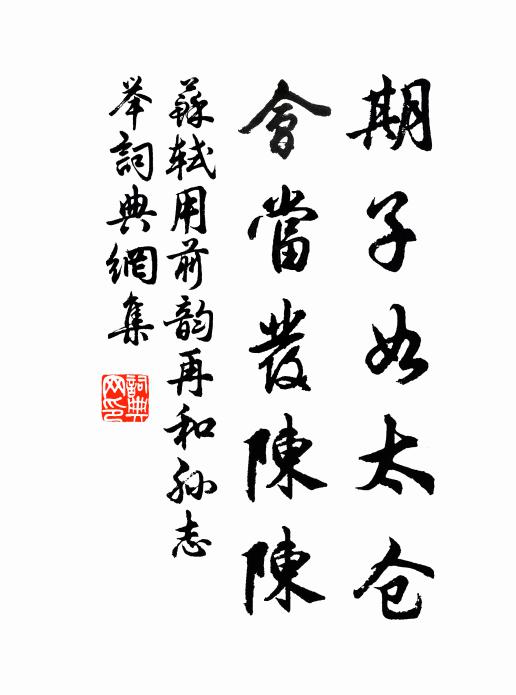 期子如太仓
會當發陳陳
蘇軾用前韵再和孙志
举詞典網集
詞典網印